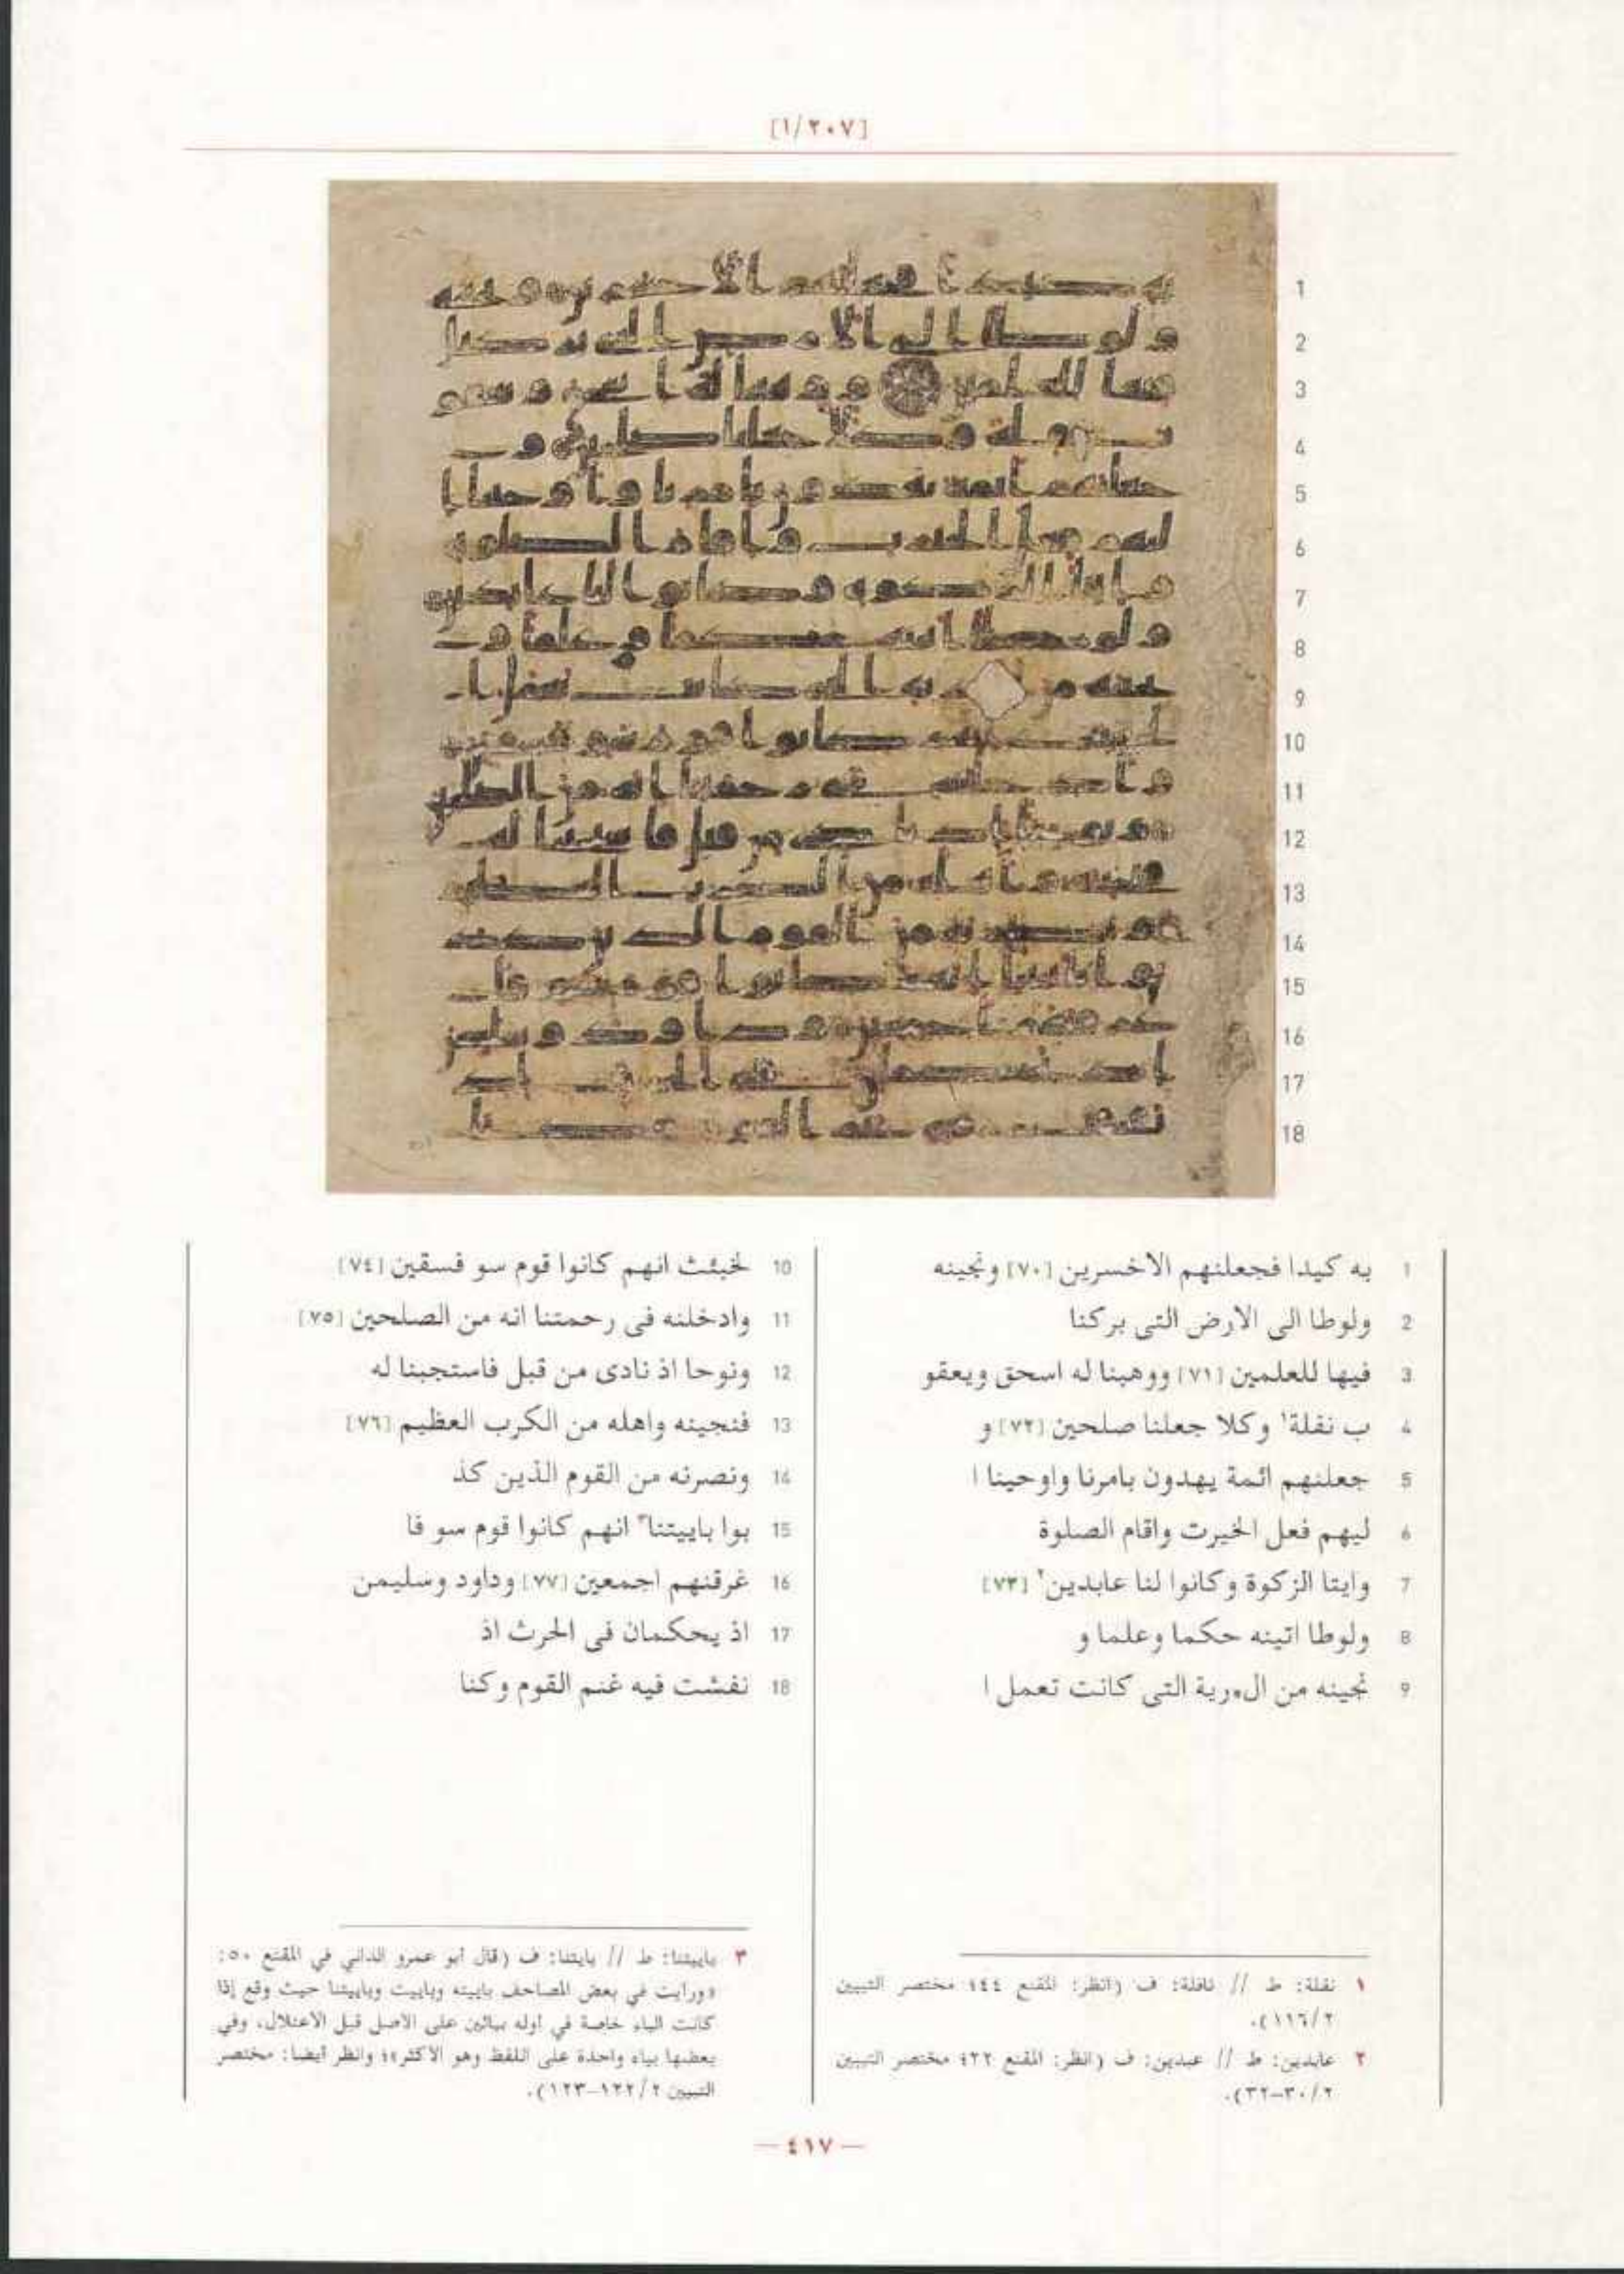 [١/٢٠٧]
1
2
3
4
5
6
7
8
9
10
11
12
13
14
15
16
17
18
1 به كيدا فجعلنهم الاخسرين [٧٠] ونجينه
2 ولوطا الى الارض التى بركنا
3 فيها للعلمين [٧١] ووهبنا له اسحق ويعقو
4 ب نفلة١ وكلا جعلنا صلحين [٧٢] و
5 جعلنهم ائمة يهدون بامرنا واوحينا ا
6 ليهم فعل الخيرت واقام الصلوة
7 وايتا الزكوة وكانوا لنا عابدين٢ [٧٣]
8 ولوطا اتينه حكما وعلما و
9 نجينه من ال٥رية التى كانت تعمل ا
10 لخبئث انهم كانوا قوم سو فسقين [٧٤]
11 وادخلنه فى رحمتنا انه من الصلحين [٧٥]
12 ونوحا اذ نادى من قبل فاستجبنا له
13 فنجينه واهله من الكرب العظيم [٧٦]
14 ونصرنه من القوم الذين كذ
15 بوا باييتنا٣ انهم كانوا قوم سو فا
16 غرقنهم اجمعين [٧٧] وداود وسليمن
17 اذ يحكمان فى الحرث اذ
18 نفشت فيه غنم القوم وكنا
١ نفلة: ط // نافلة: ف (انظر: المقنع ٤٤؛ مختصر التبيين
٢/١١٦).
٢ عابدين: ط // عبدين: ف (انظر: المقنع ٢٢؛ مختصر التبيين
٢/٣٠-٣٢).
٣ باييتنا: ط // بايتنا: ف (قال أبو عمرو الداني في المقنع ٥٠:
«ورايت في بعض المصاحف باييته وباييت وباييتنا حيث وقع إذا
كانت الباء خاصة في اوله بيائين على الاصل قبل الاعتلال، وفي
بعضها بياء واحدة على اللفظ وهو الاكثر»؛ وانظر أيضا: مختصر
التبيين ٢/١٢٢-١٢٣).
— ٤١٧ —